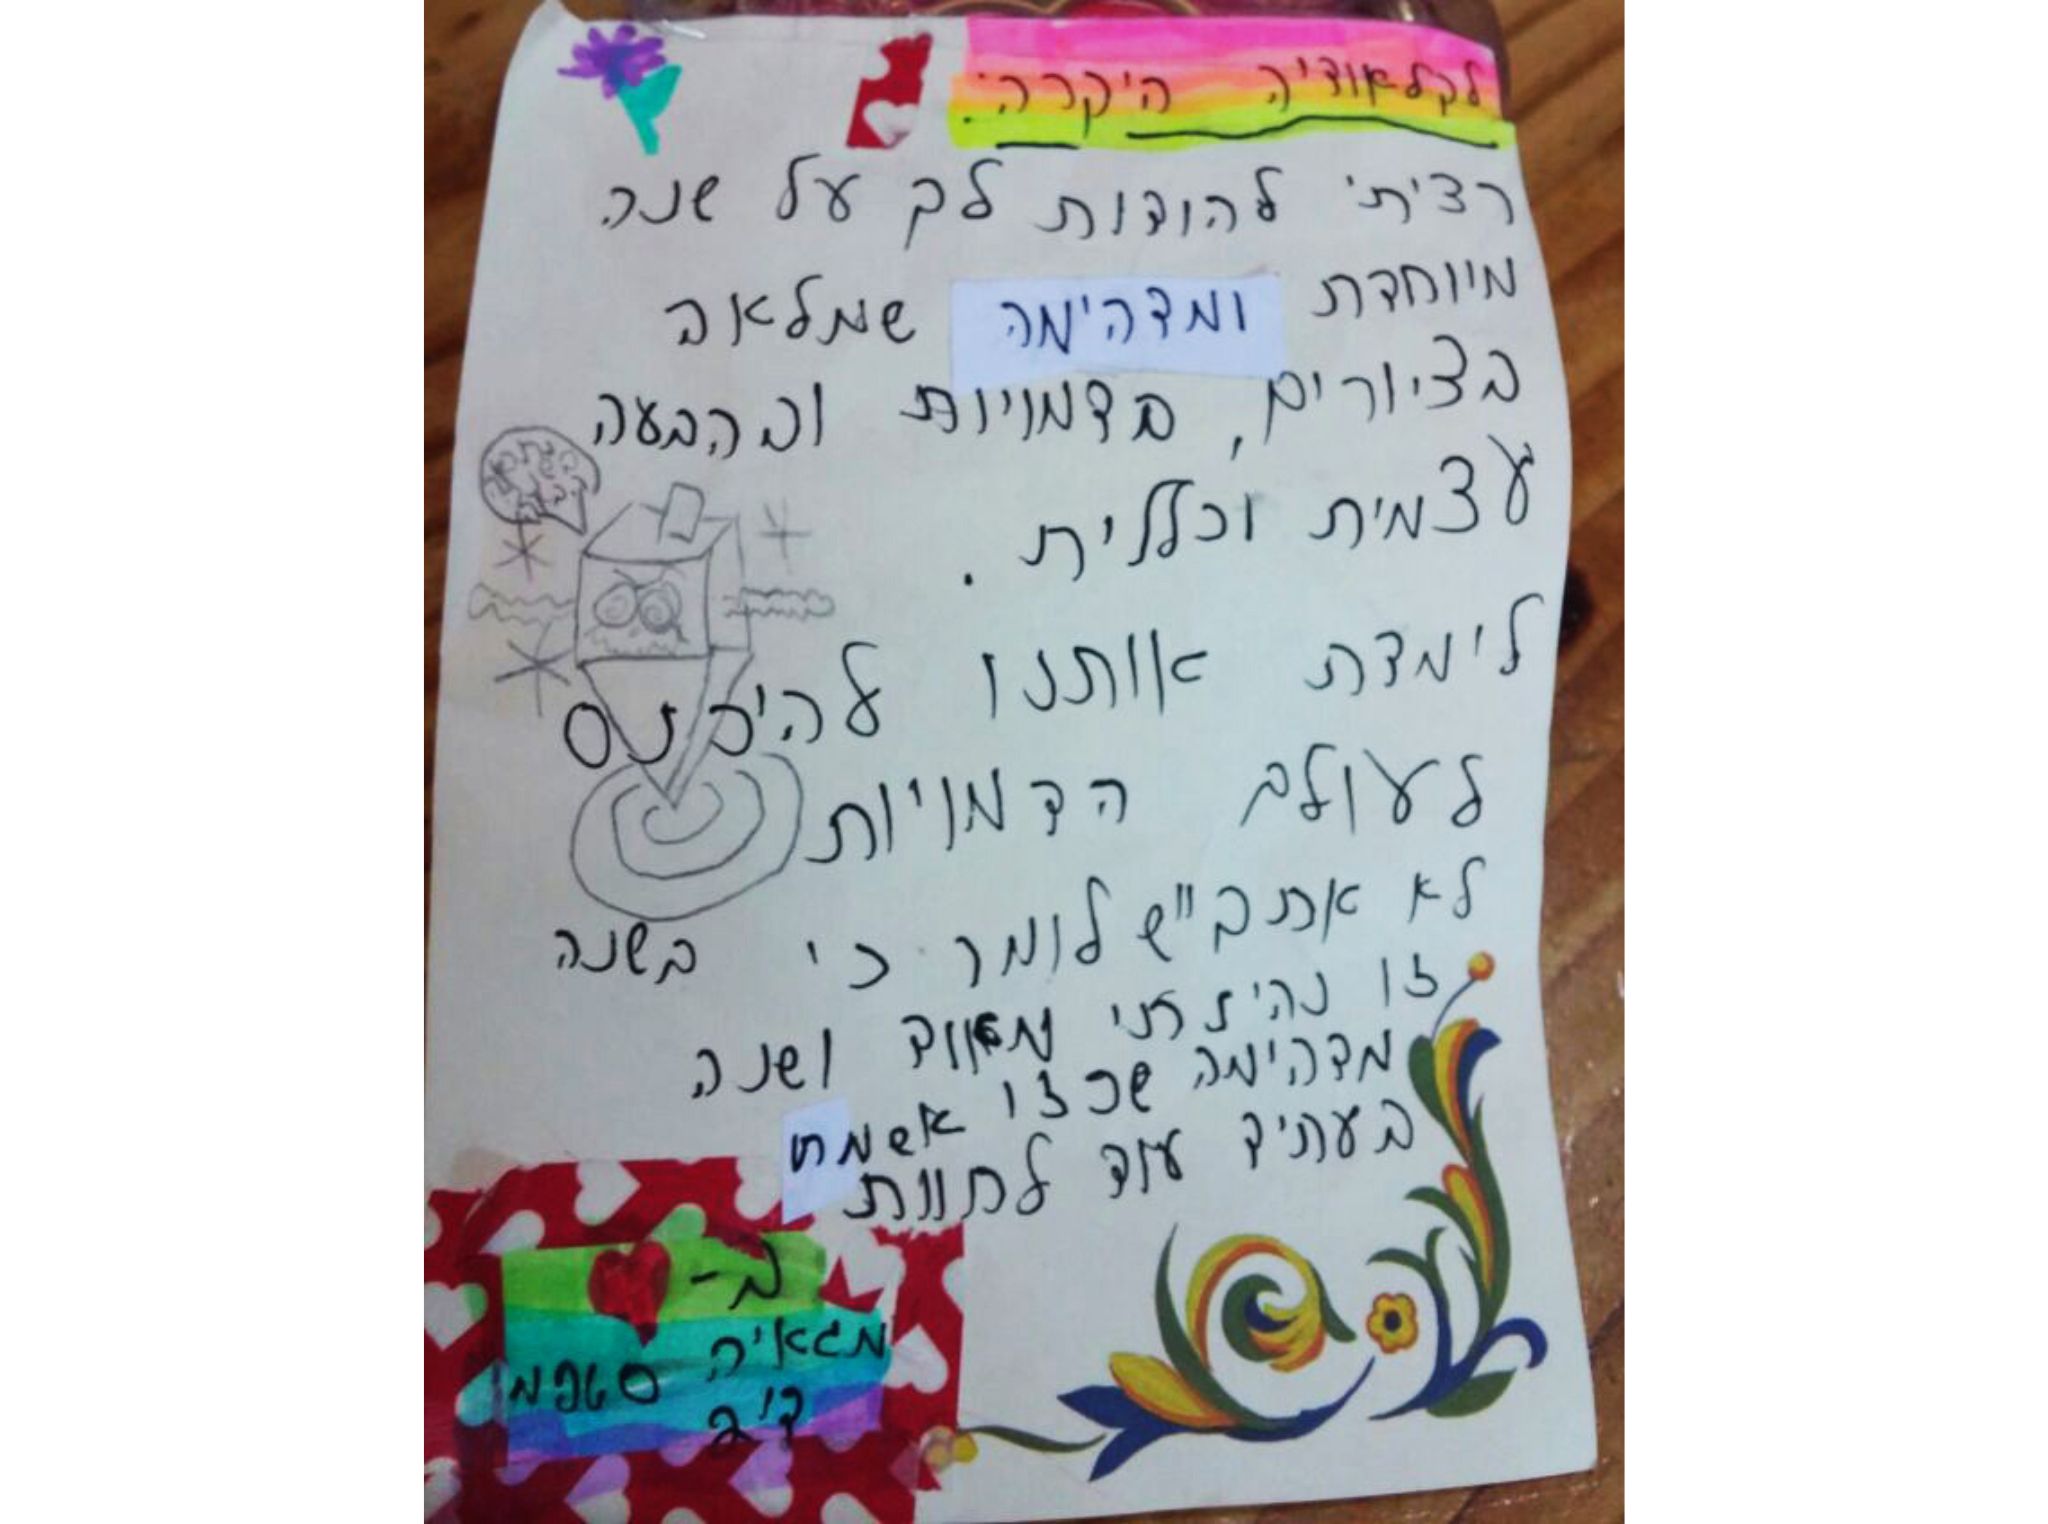 לקלאודיה היקרה:
רציתי להודות לך על שנה
מיוחדת ומדהימה שמלאה
בציורים, בדמויות ובהבעה
עצמית וכללית.
לימדת אותנו להיכנס
לעולם הדמויות
לא אתב"ש לומר כי בשנה
זו נהיתרתי מאוד ושנה
מדהימה שכזו אשמח
בעתיד עוד לחוות
מ-
מגאיה
ד'2